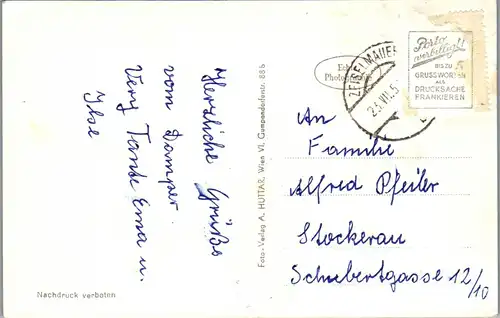 Herzliche Grüße
vom Damper
Very Tante Erna u.
Ilse
Nachdruck verboten
Foto-Verlag A. HUTTAR, Wien VI, Gumpendorferstr. 88b
Echte
ZEISELMAUER
23.VII.5
Porto
verbilligt!
BIS ZU 5
GRUSSWORTEN
ALS
DRUCKSACHE
FRANKIEREN
An
Familie
Alfred Pfeiler
Stockerau
Schubertgasse 12/10